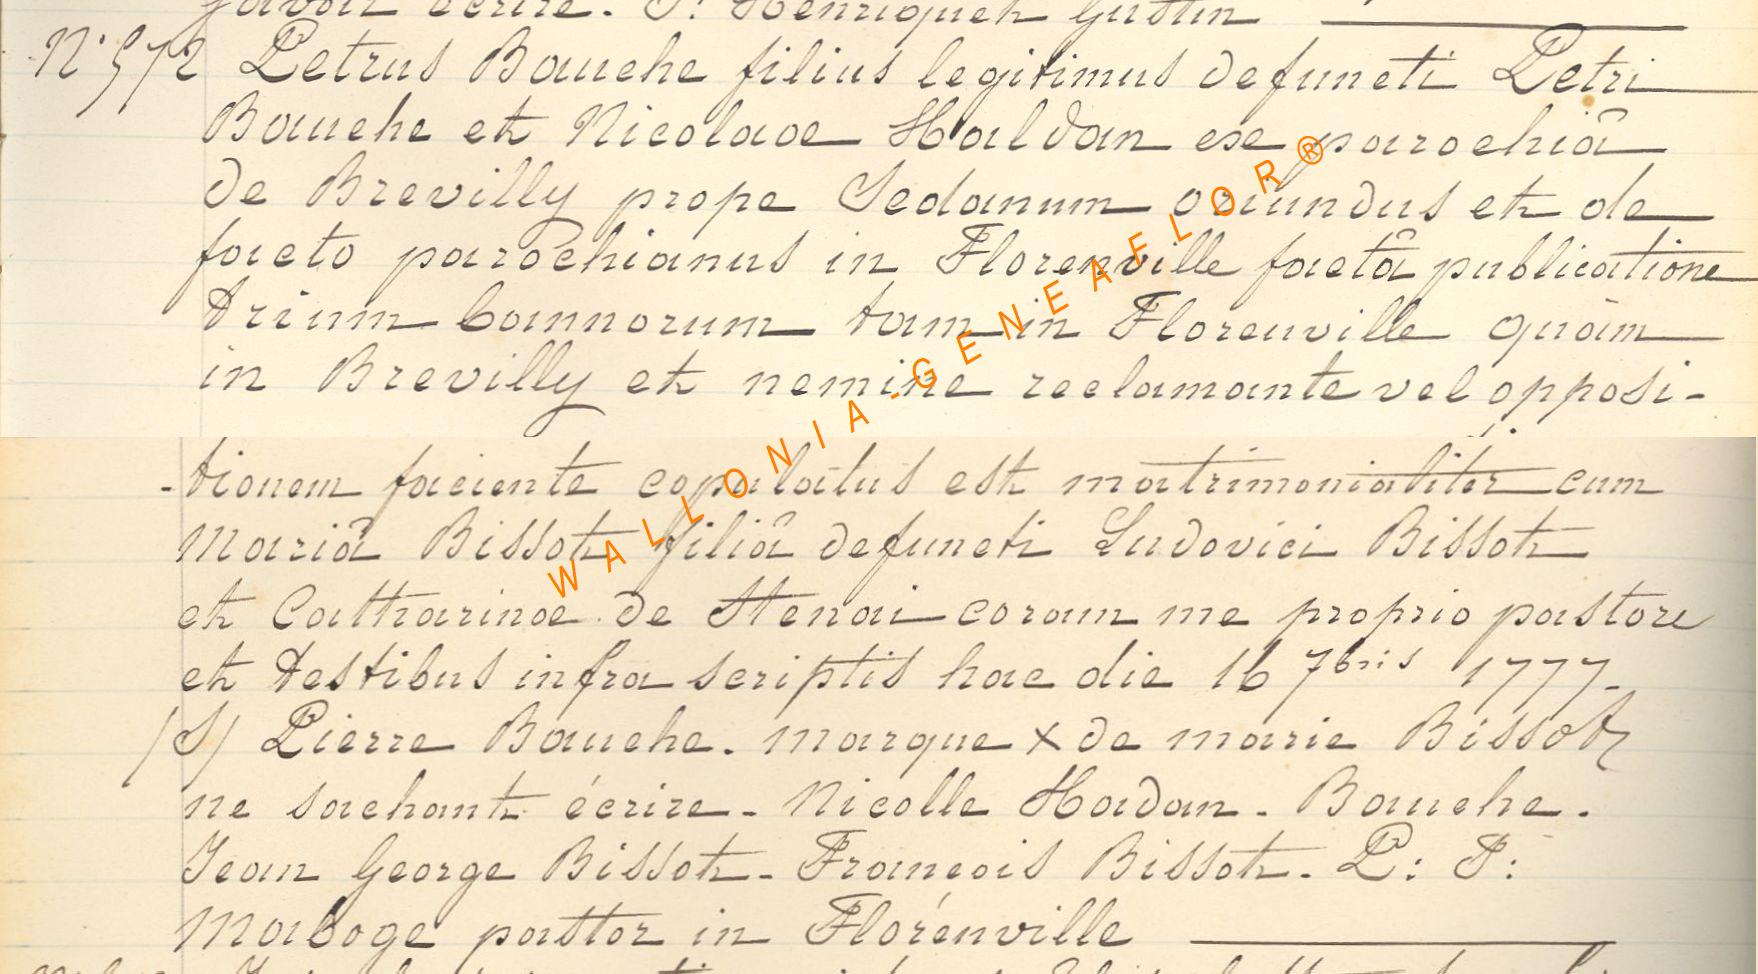 savoir écrire. J: Henriquet Gustin
N° 572 Petrus Bauche filius legitimus defuncti Petri
Bauche et Nicolaoe Haldan exe parochiâ
de Brevilly prope Sedanum oriundus et de
facto parochianus in Florenville factâ publicatione
trium bannorum tam in Florenville quàm
in Brevilly et nemine reclamante vel opposi-
-tionem faciente copulatus est matrimonialiter cum
Mariâ Bissot filiâ defuncti Ludovici Bissot
et Catharinoe de Stenai coram me proprio pastore
et testibus infra scriptis hac die 16 7bris 1777.
(S) Pierre Bauche. marque x de marie Bissot
ne sachant écrire. Nicolle Hadan. Bauche.
Jean George Bissot. François Bissot. P: J:
Maboge pastor in Florénville
WALLONIA-GENEAFLOR®